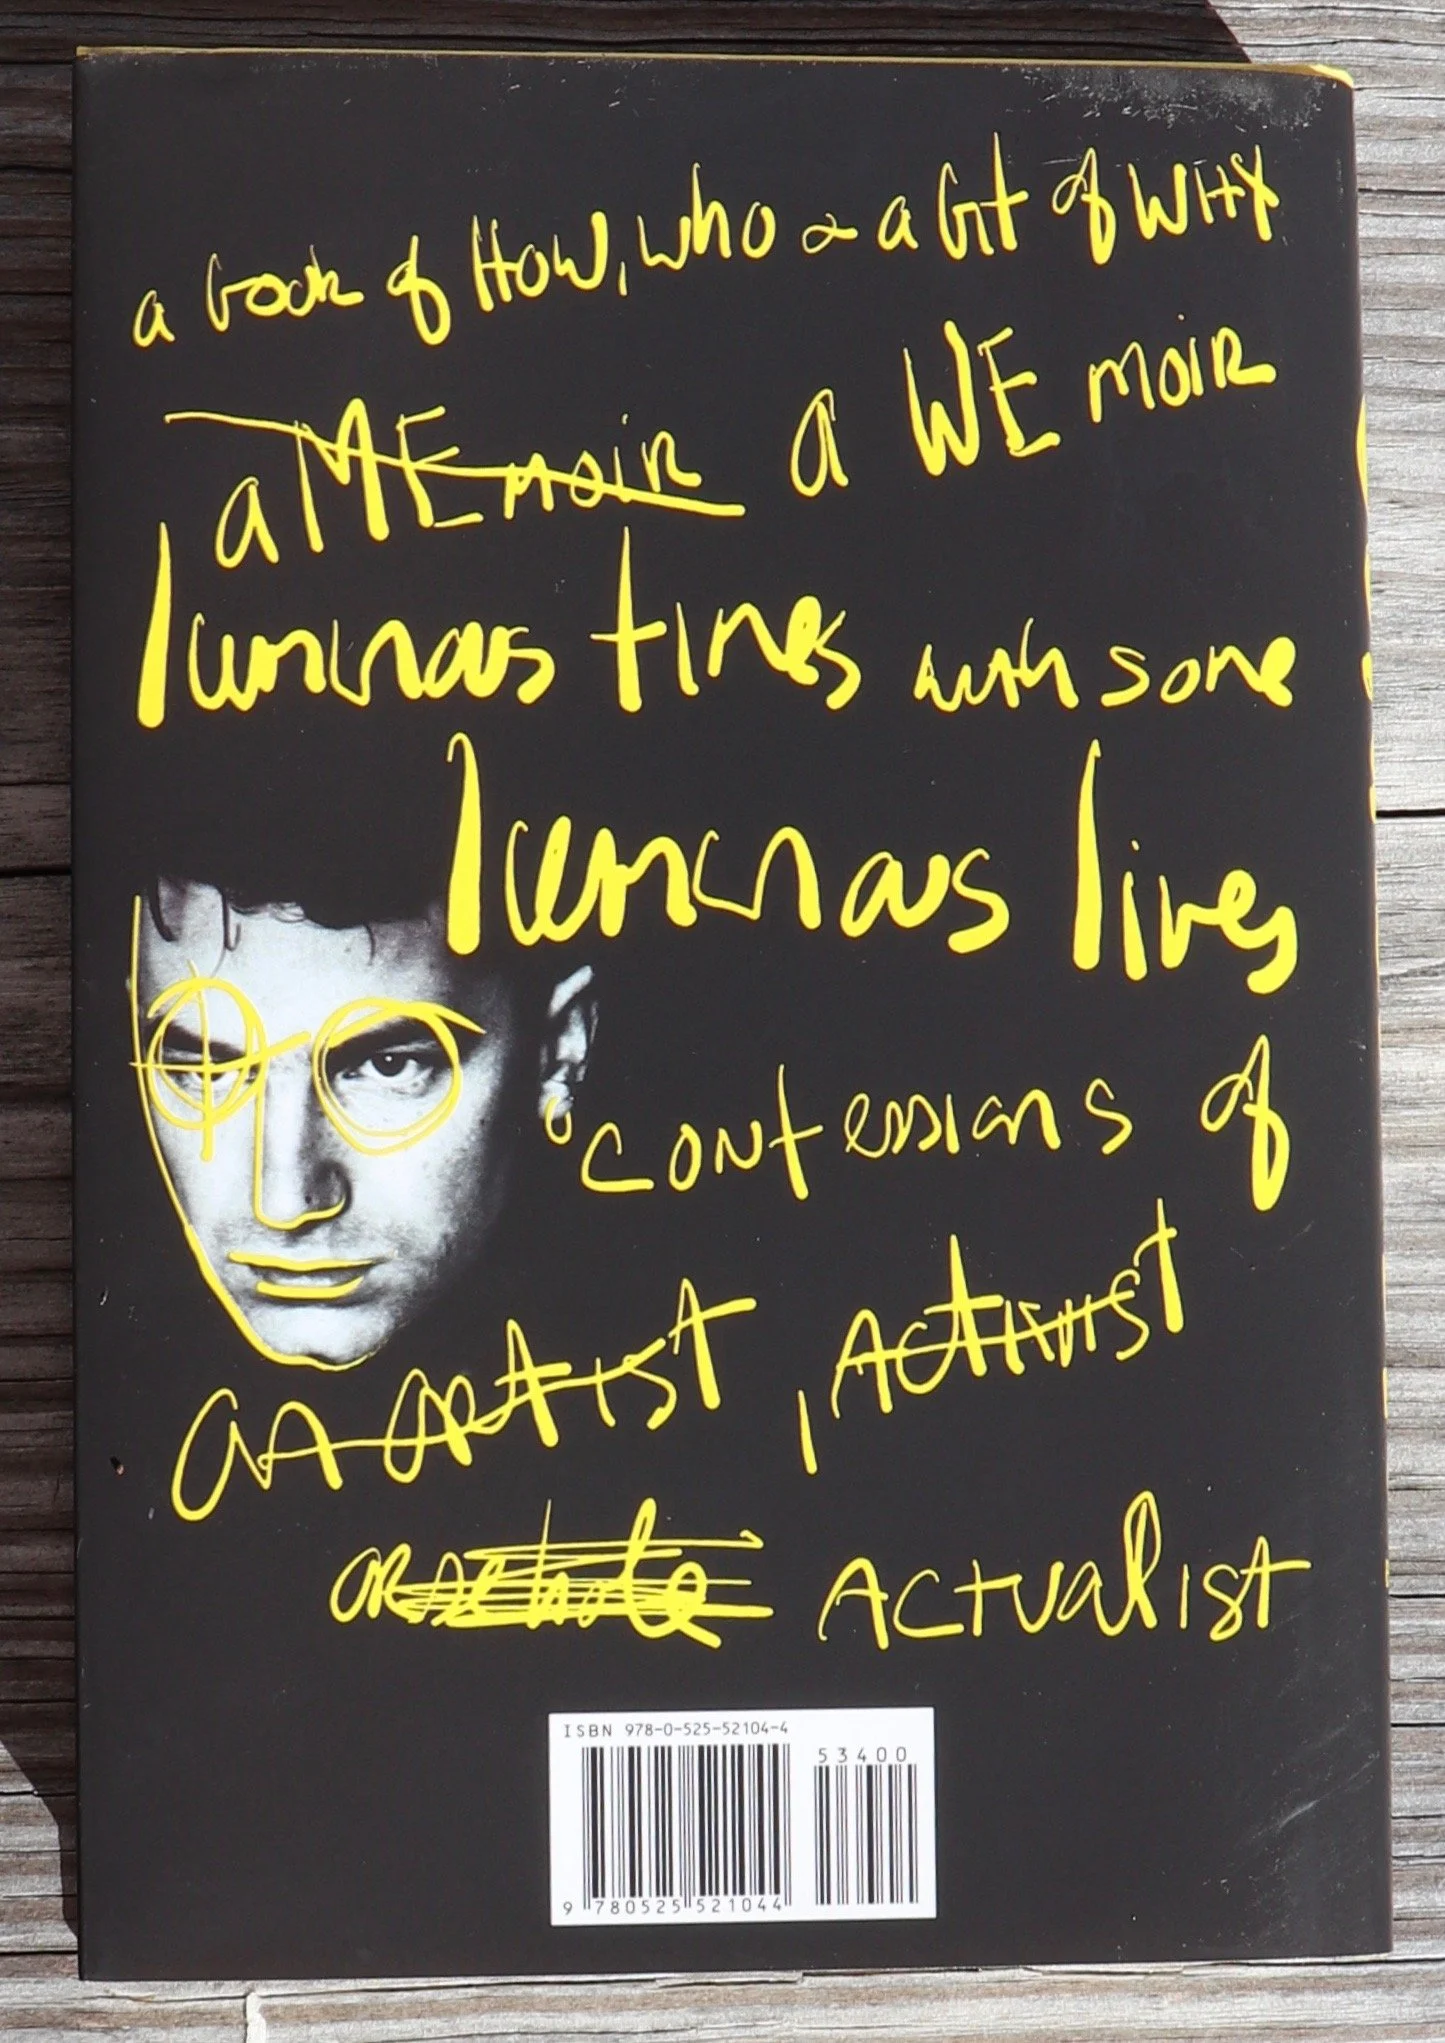 a book of HOW, who & a bit of WHY
a MEmoir a WE moir
luminous times with some
luminous lives
confessions of
an artist, Activist
Actualist
ISBN 978-0-525-52104-4
53400
9 780525 521044